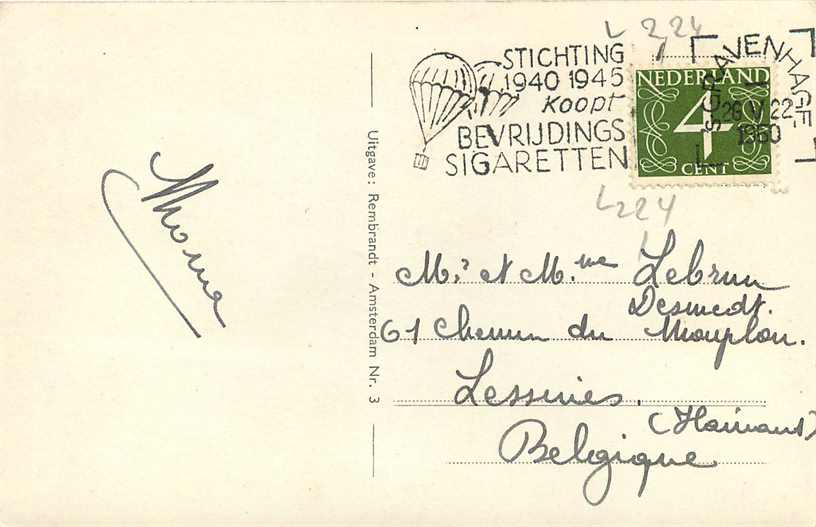 L 224
STICHTING
1940 1945
Koopt
BEVRIJDINGS
SIGARETTEN
NEDERLAND
4
CENT
'S GRAVENHAGE
26.V.22
1950
L224
Uitgave: Rembrandt - Amsterdam Nr. 3
Mr et Mme Lebrun
Desmedt.
61 Chemin du Mouplon.
Lessines.
(Hainaut)
Belgique